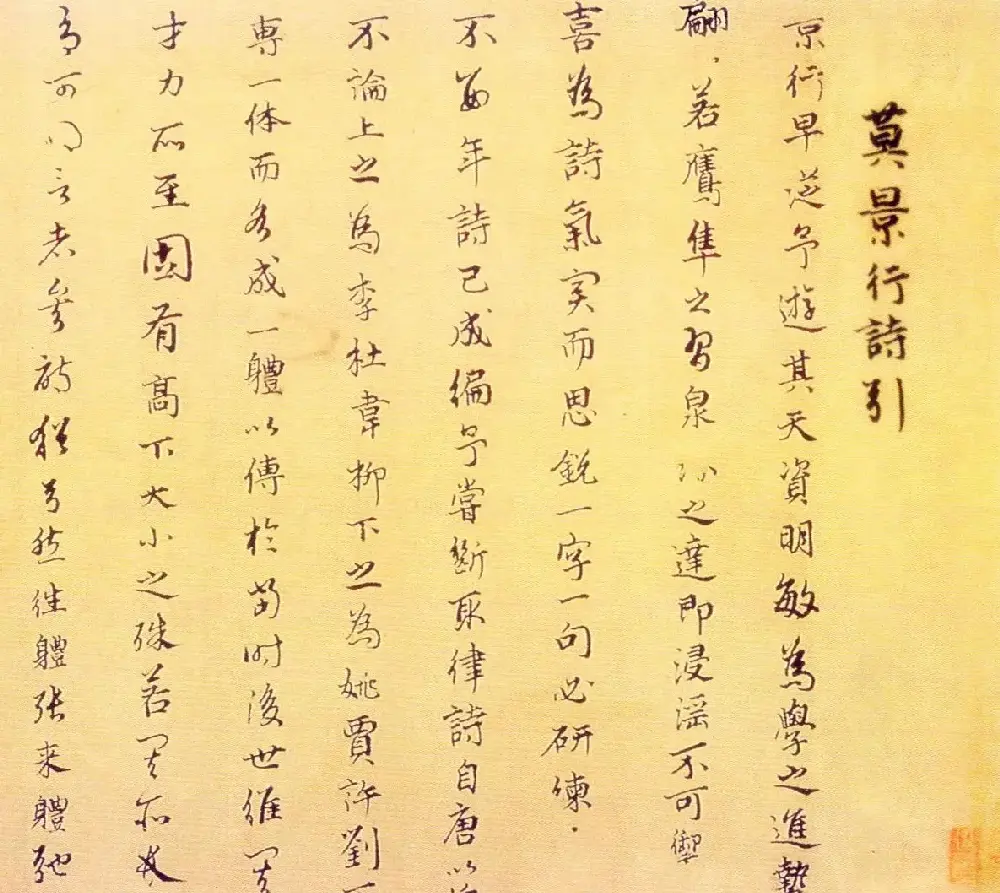 莫景行詩引
景行早從予遊其天資明敏為學之進勢
翩若鷹隼之習泉之達即浸淫不可禦
喜為詩氣实而思銳一字一句必研練
不數年詩已成編予嘗斷取律詩自唐以
不論上之為李杜韋柳下之為姚賈許劉
專一体而各成一體以傳於當时後世雖
才力所至固有高下大小之殊若其所
可同言者
體張来體弛